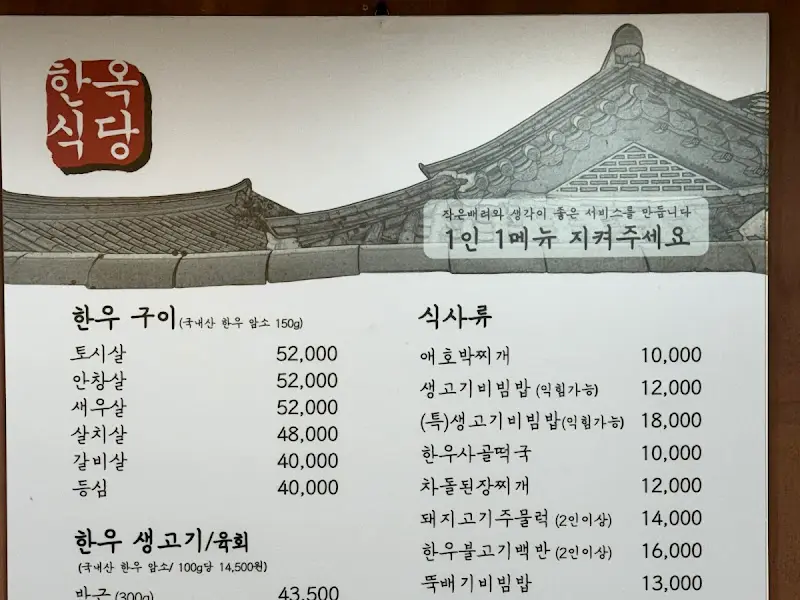 한옥
식당
작은배려와 생각이 좋은 서비스를 만듭니다
1인 1메뉴 지켜주세요
한우 구이(국내산 한우 암소 150g)
토시살 52,000
안창살 52,000
새우살 52,000
살치살 48,000
갈비살 40,000
등심 40,000
한우 생고기/육회
(국내산 한우 암소/ 100g당 14,500원)
반근 (300g) 43,500
식사류
애호박찌개 10,000
생고기비빔밥 (익힘가능) 12,000
(특)생고기비빔밥(익힘가능) 18,000
한우사골떡국 10,000
차돌된장찌개 12,000
돼지고기주물럭 (2인이상) 14,000
한우불고기백반 (2인이상) 16,000
뚝배기비빔밥 13,000